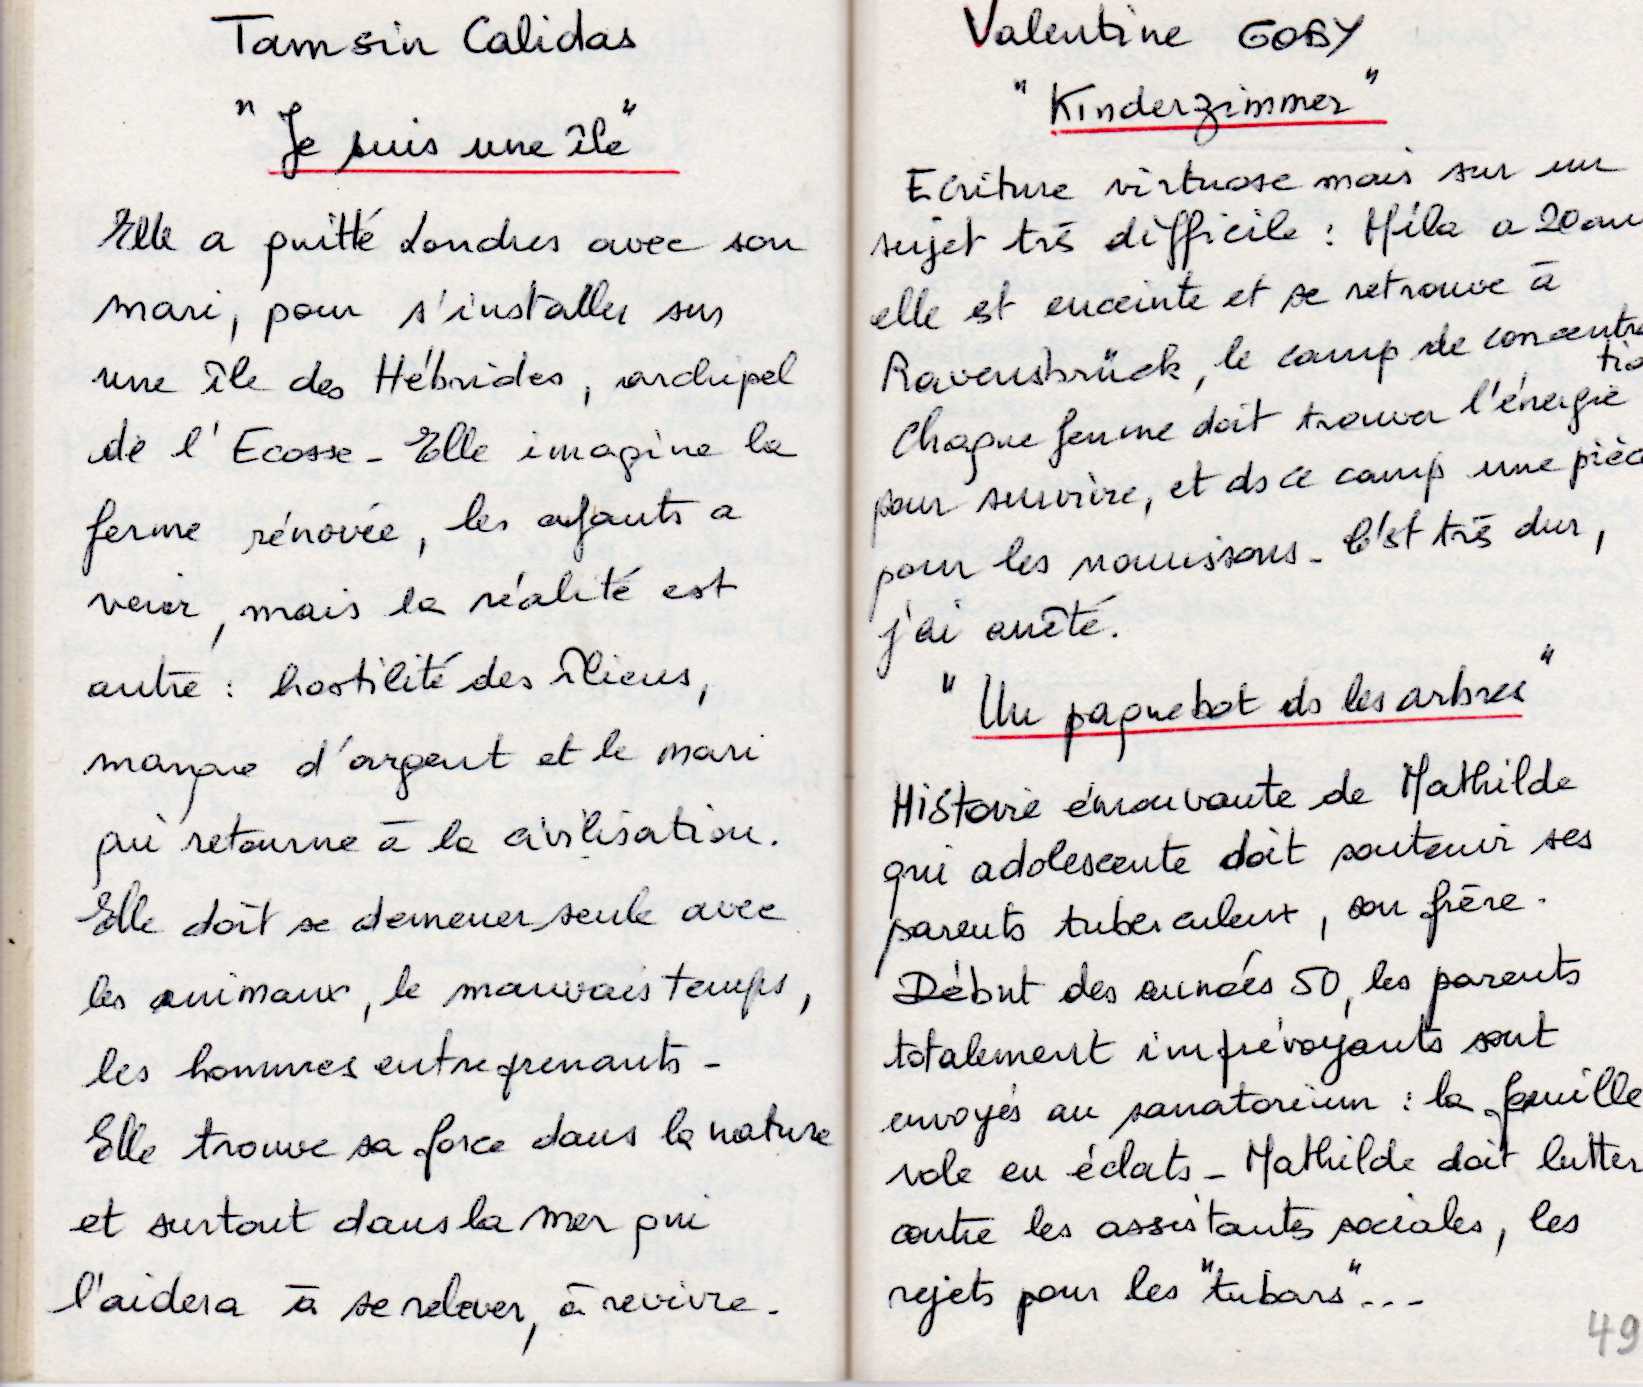 Tamsin Calidas
"Je suis une île"
Elle a quitté Londres avec son
mari, pour s'installer sur
une île des Hébrides, archipel
de l'Ecosse - Elle imagine la
ferme rénovée, les enfants à
venir, mais la réalité est
autre : hostilité des îliens,
manque d'argent et le mari
qui retourne à la civilisation.
Elle doit se demener seule avec
les animaux, le mauvais temps,
les hommes entreprenants -
Elle trouve sa force dans la nature
et surtout dans la mer qui
l'aidera à se relever, à revivre.
Valentine GOBY
"Kinderzimmer"
Ecriture virtuose mais sur un
sujet très difficile : Mila a 20 ans
elle est enceinte et se retrouve à
Ravensbrück, le camp de concentra
tio
Chaque femme doit trouver l'énergie
pour survivre, et ds ce camp une pièce
pour les nourrissons - C'est très dur,
j'ai arrêté.
"Un paquebot ds les arbres"
Histoire émouvante de Mathilde
qui adolescente doit soutenir ses
parents tuberculeux, son frère.
Début des années 50, les parents
totalement imprévoyants sont
envoyés au sanatorium : la famille
vole en éclats - Mathilde doit lutter
contre les assistants sociales, les
rejets pour les "tubars"...
49